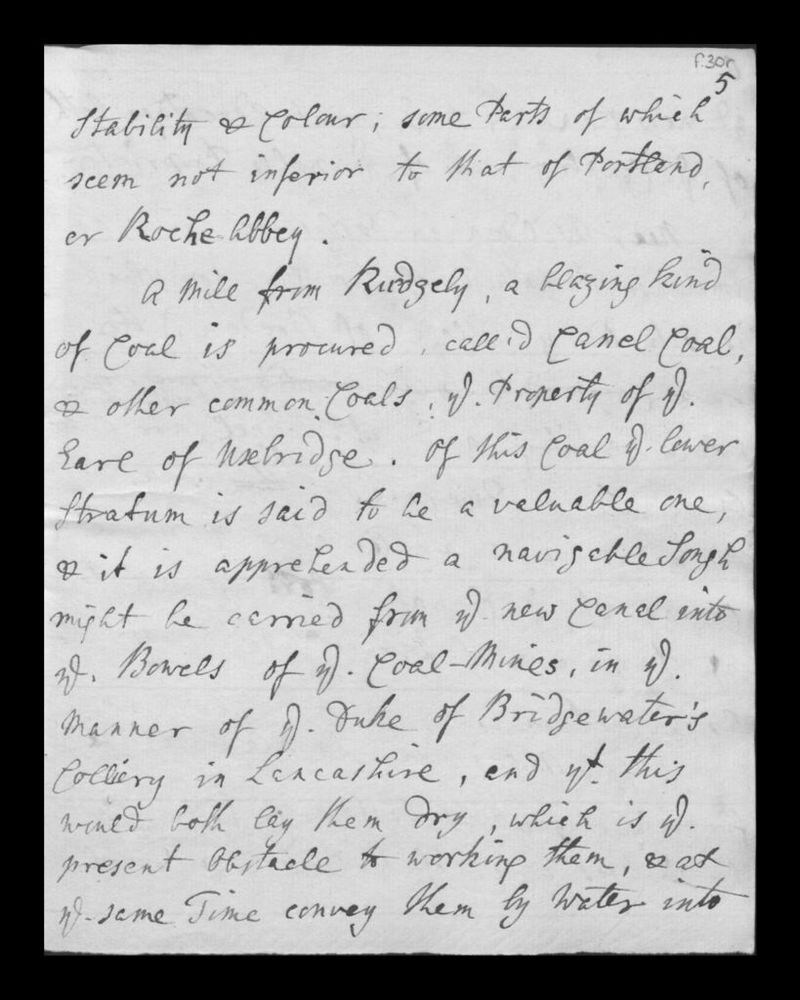 f.30r
5
Stability & Colour; some Parts of which
seem not inferior to that of Portland,
or Roche Abbey.
A Mile from Rudgely, a blazing kind
of Coal is procured, call'd Canel Coal,
& other common Coals, ye. Property of ye.
Earl of Uxbridge. Of this Coal ye. lower
Stratum is said to be a valuable one,
& it is apprehended a navigable Sough
might be carried from ye. new Canal into
ye. Bowels of ye. Coal-Mines, in ye.
Manner of ye. Duke of Bridgewater's
Colliery in Lancashire, and yt. this
would both lay them Dry, which is ye.
present Obstacle to working them, & at
ye. same Time convey them by Water into